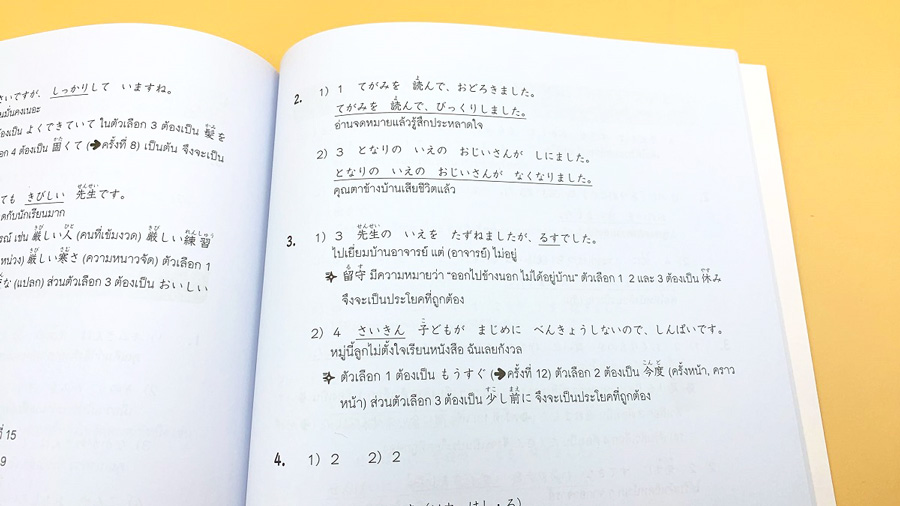 さいですが、しっかりして いますね。
ต้องเป็น よくできていて ในตัวเลือก 3 ต้องเป็น 髪を
4 ต้องเป็น 固くて (➔ครั้งที่ 8) เป็นต้น จึงจะเป็น
ても きびしい 先生です。
กับนักเรียนมาก
เช่น 厳しい人 (คนที่เข้มงวด) 厳しい練習
厳しい寒さ (ความหนาวจัด) ตัวเลือก 1
な (แปลก) ส่วนตัวเลือก 3 ต้องเป็น おいしい
ที่ 15
9
2. 1) 1 てがみを 読んで、おどろきました。
てがみを 読んで、びっくりしました。
อ่านจดหมายแล้วรู้สึกประหลาดใจ
2) 3 となりの いえの おじいさんが しにました。
となりの いえの おじいさんが なくなりました。
คุณตาข้างบ้านเสียชีวิตแล้ว
3. 1) 3 先生の いえを たずねましたが、るすでした。
ไปเยี่ยมบ้านอาจารย์ แต่ (อาจารย์) ไม่อยู่
留守 มีความหมายว่า "ออกไปข้างนอก ไม่ได้อยู่บ้าน" ตัวเลือก 1 2 และ 3 ต้องเป็น 休み
จึงจะเป็นประโยคที่ถูกต้อง
2) 4 さいきん 子どもが まじめに べんきょうしないので、しんぱいです。
หมู่นี้ลูกไม่ตั้งใจเรียนหนังสือ ฉันเลยกังวล
ตัวเลือก 1 ต้องเป็น もうすぐ (➔ครั้งที่ 12) ตัวเลือก 2 ต้องเป็น 今度 (ครั้งหน้า, คราว
หน้า) ส่วนตัวเลือก 3 ต้องเป็น 少し前に จึงจะเป็นประโยคที่ถูกต้อง
4. 1) 2 2) 2